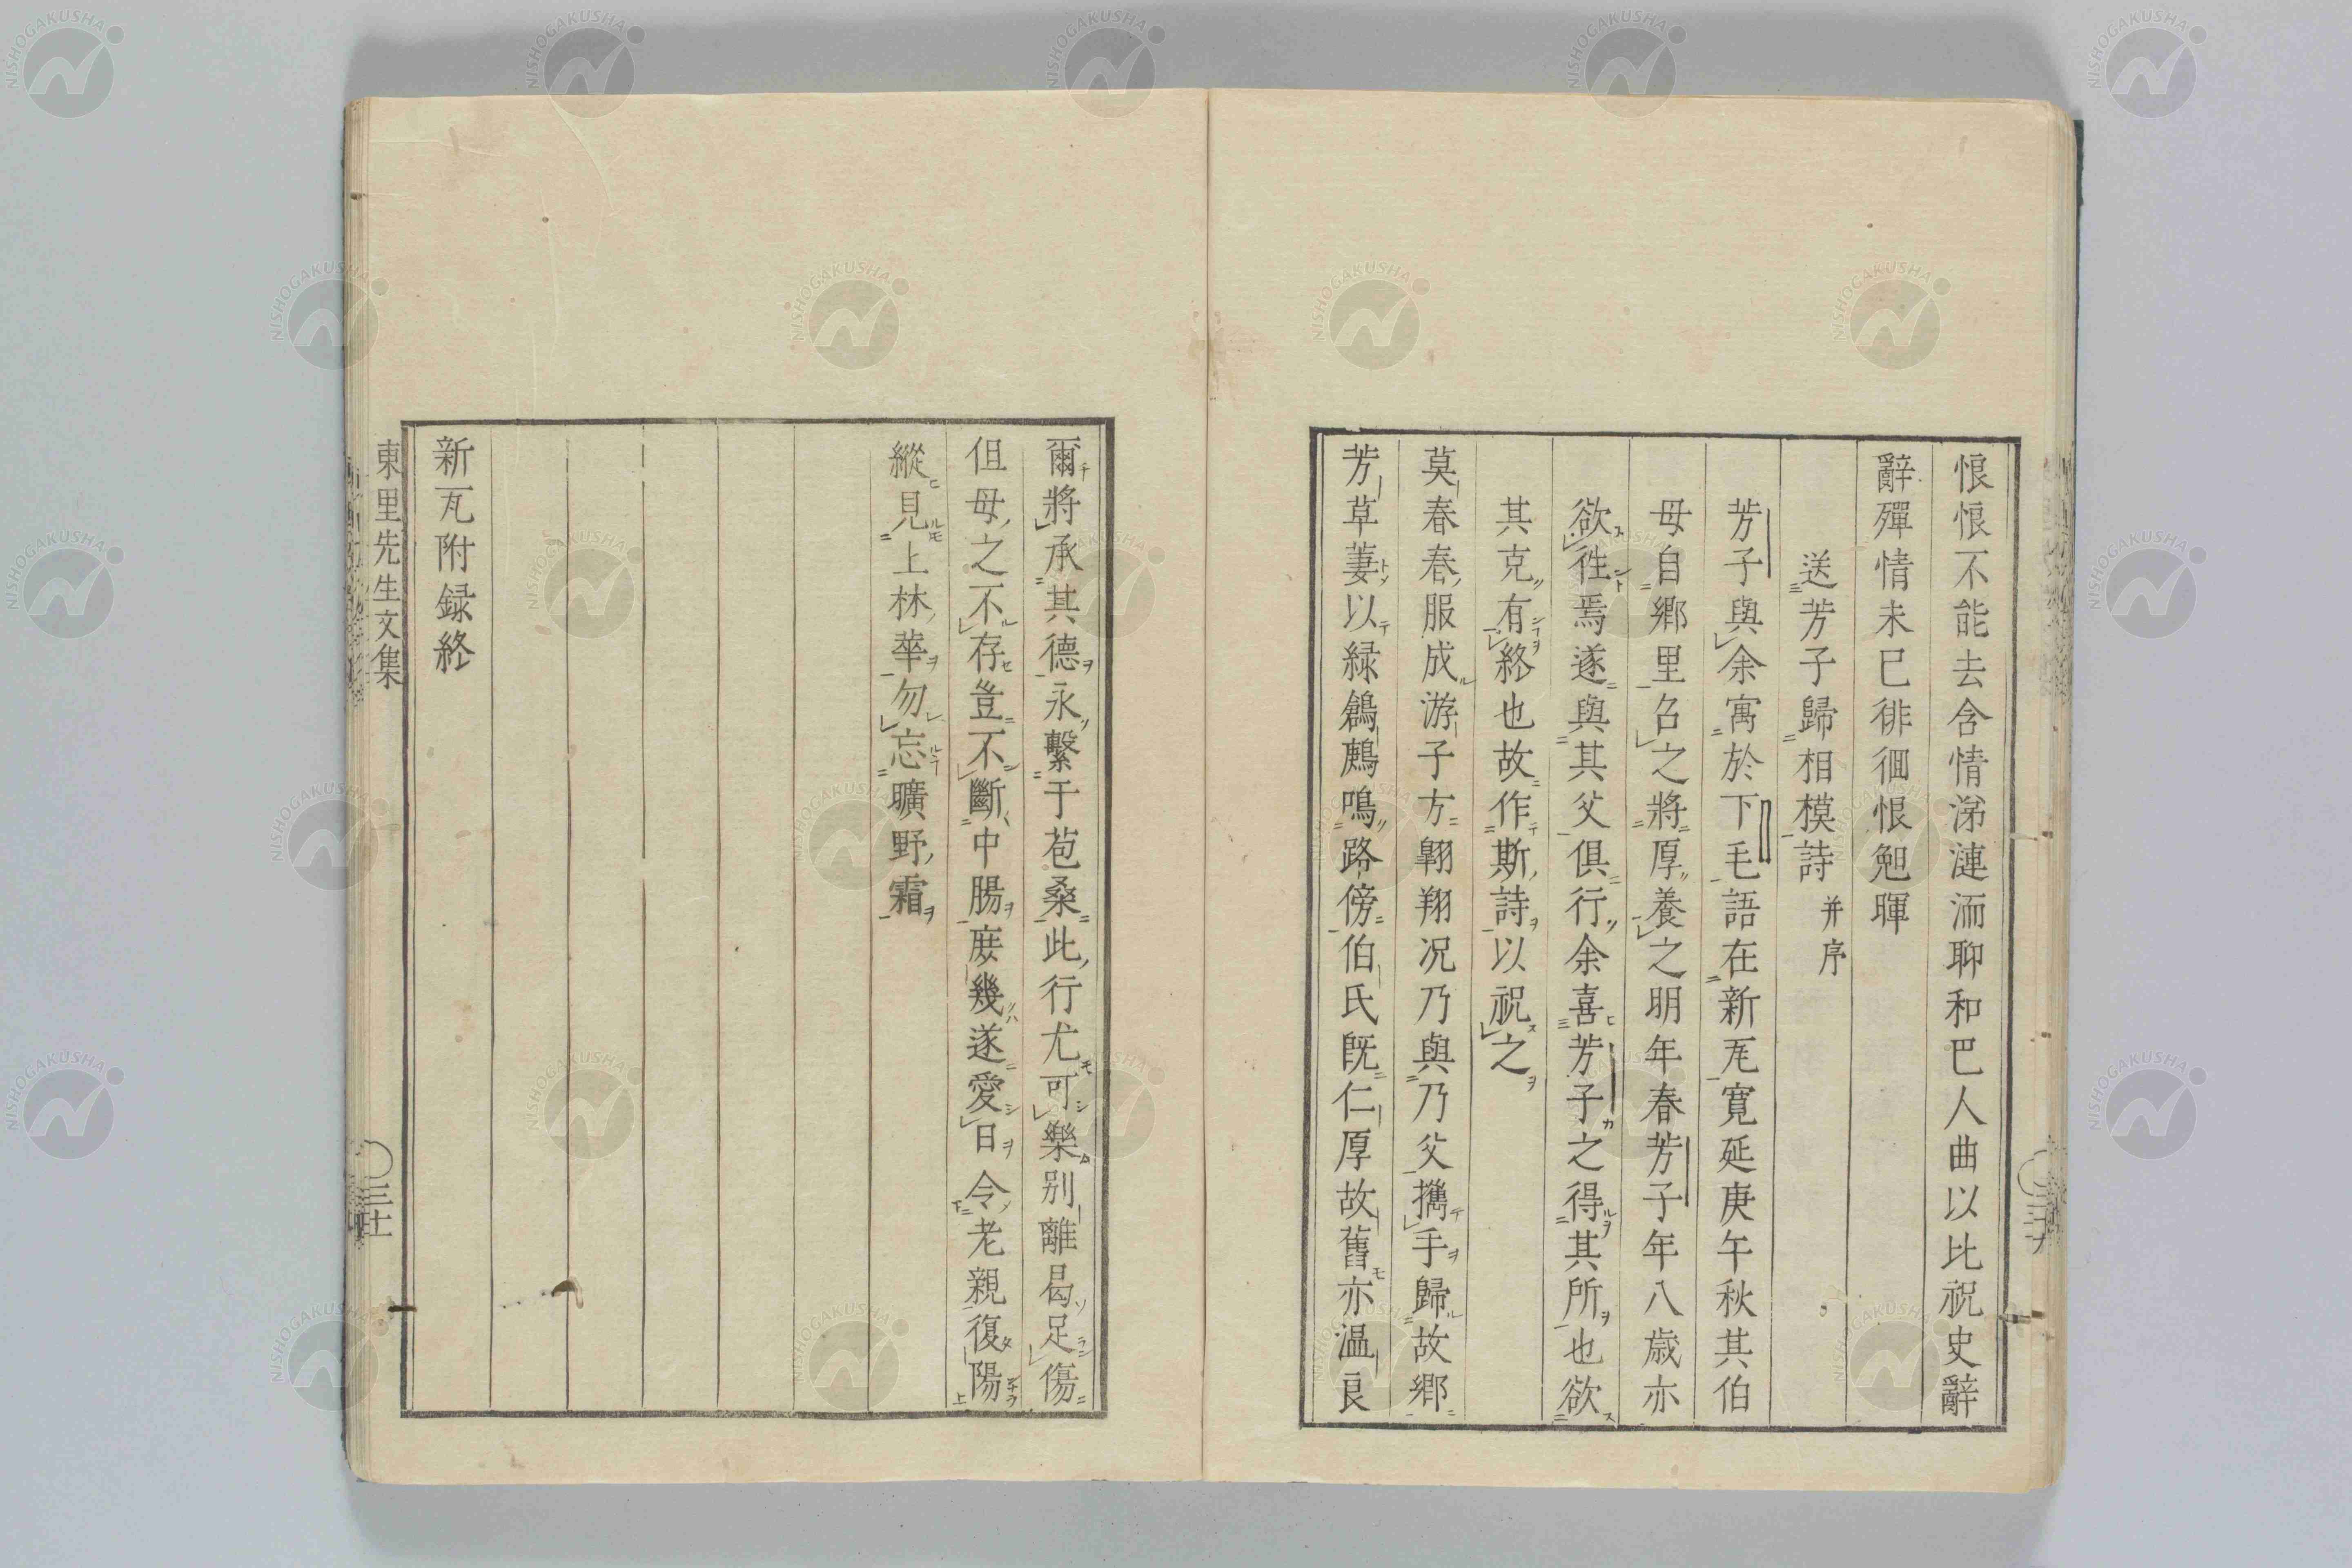 悢悢不能去含情涕漣洏聊和巴人曲以比祝史辭
辭殫情未已徘徊恨兔暉
送芳子歸相模詩并序
芳子與余寓於下毛語在新瓦寬延庚午秋其伯
母自鄉里召之將厚養之明年春芳子年八歲亦
欲徃焉遂與其父俱行余喜芳子之得其所也欲
其克有終也故作斯詩以祝之
莫春春服成游子方翺翔况乃與乃父擕手歸故鄉
芳草萋以緑鶬鶊鳴路傍伯氏既仁厚故舊亦溫良
爾將承其德永繫于苞桑此行尤可樂別離曷足傷
但母之不存豈不斷中腸庶幾遂愛日令老親復陽
縱見上林華勿忘曠野霜
新瓦附録終
東里先生文集
NISHOGAKUSHA